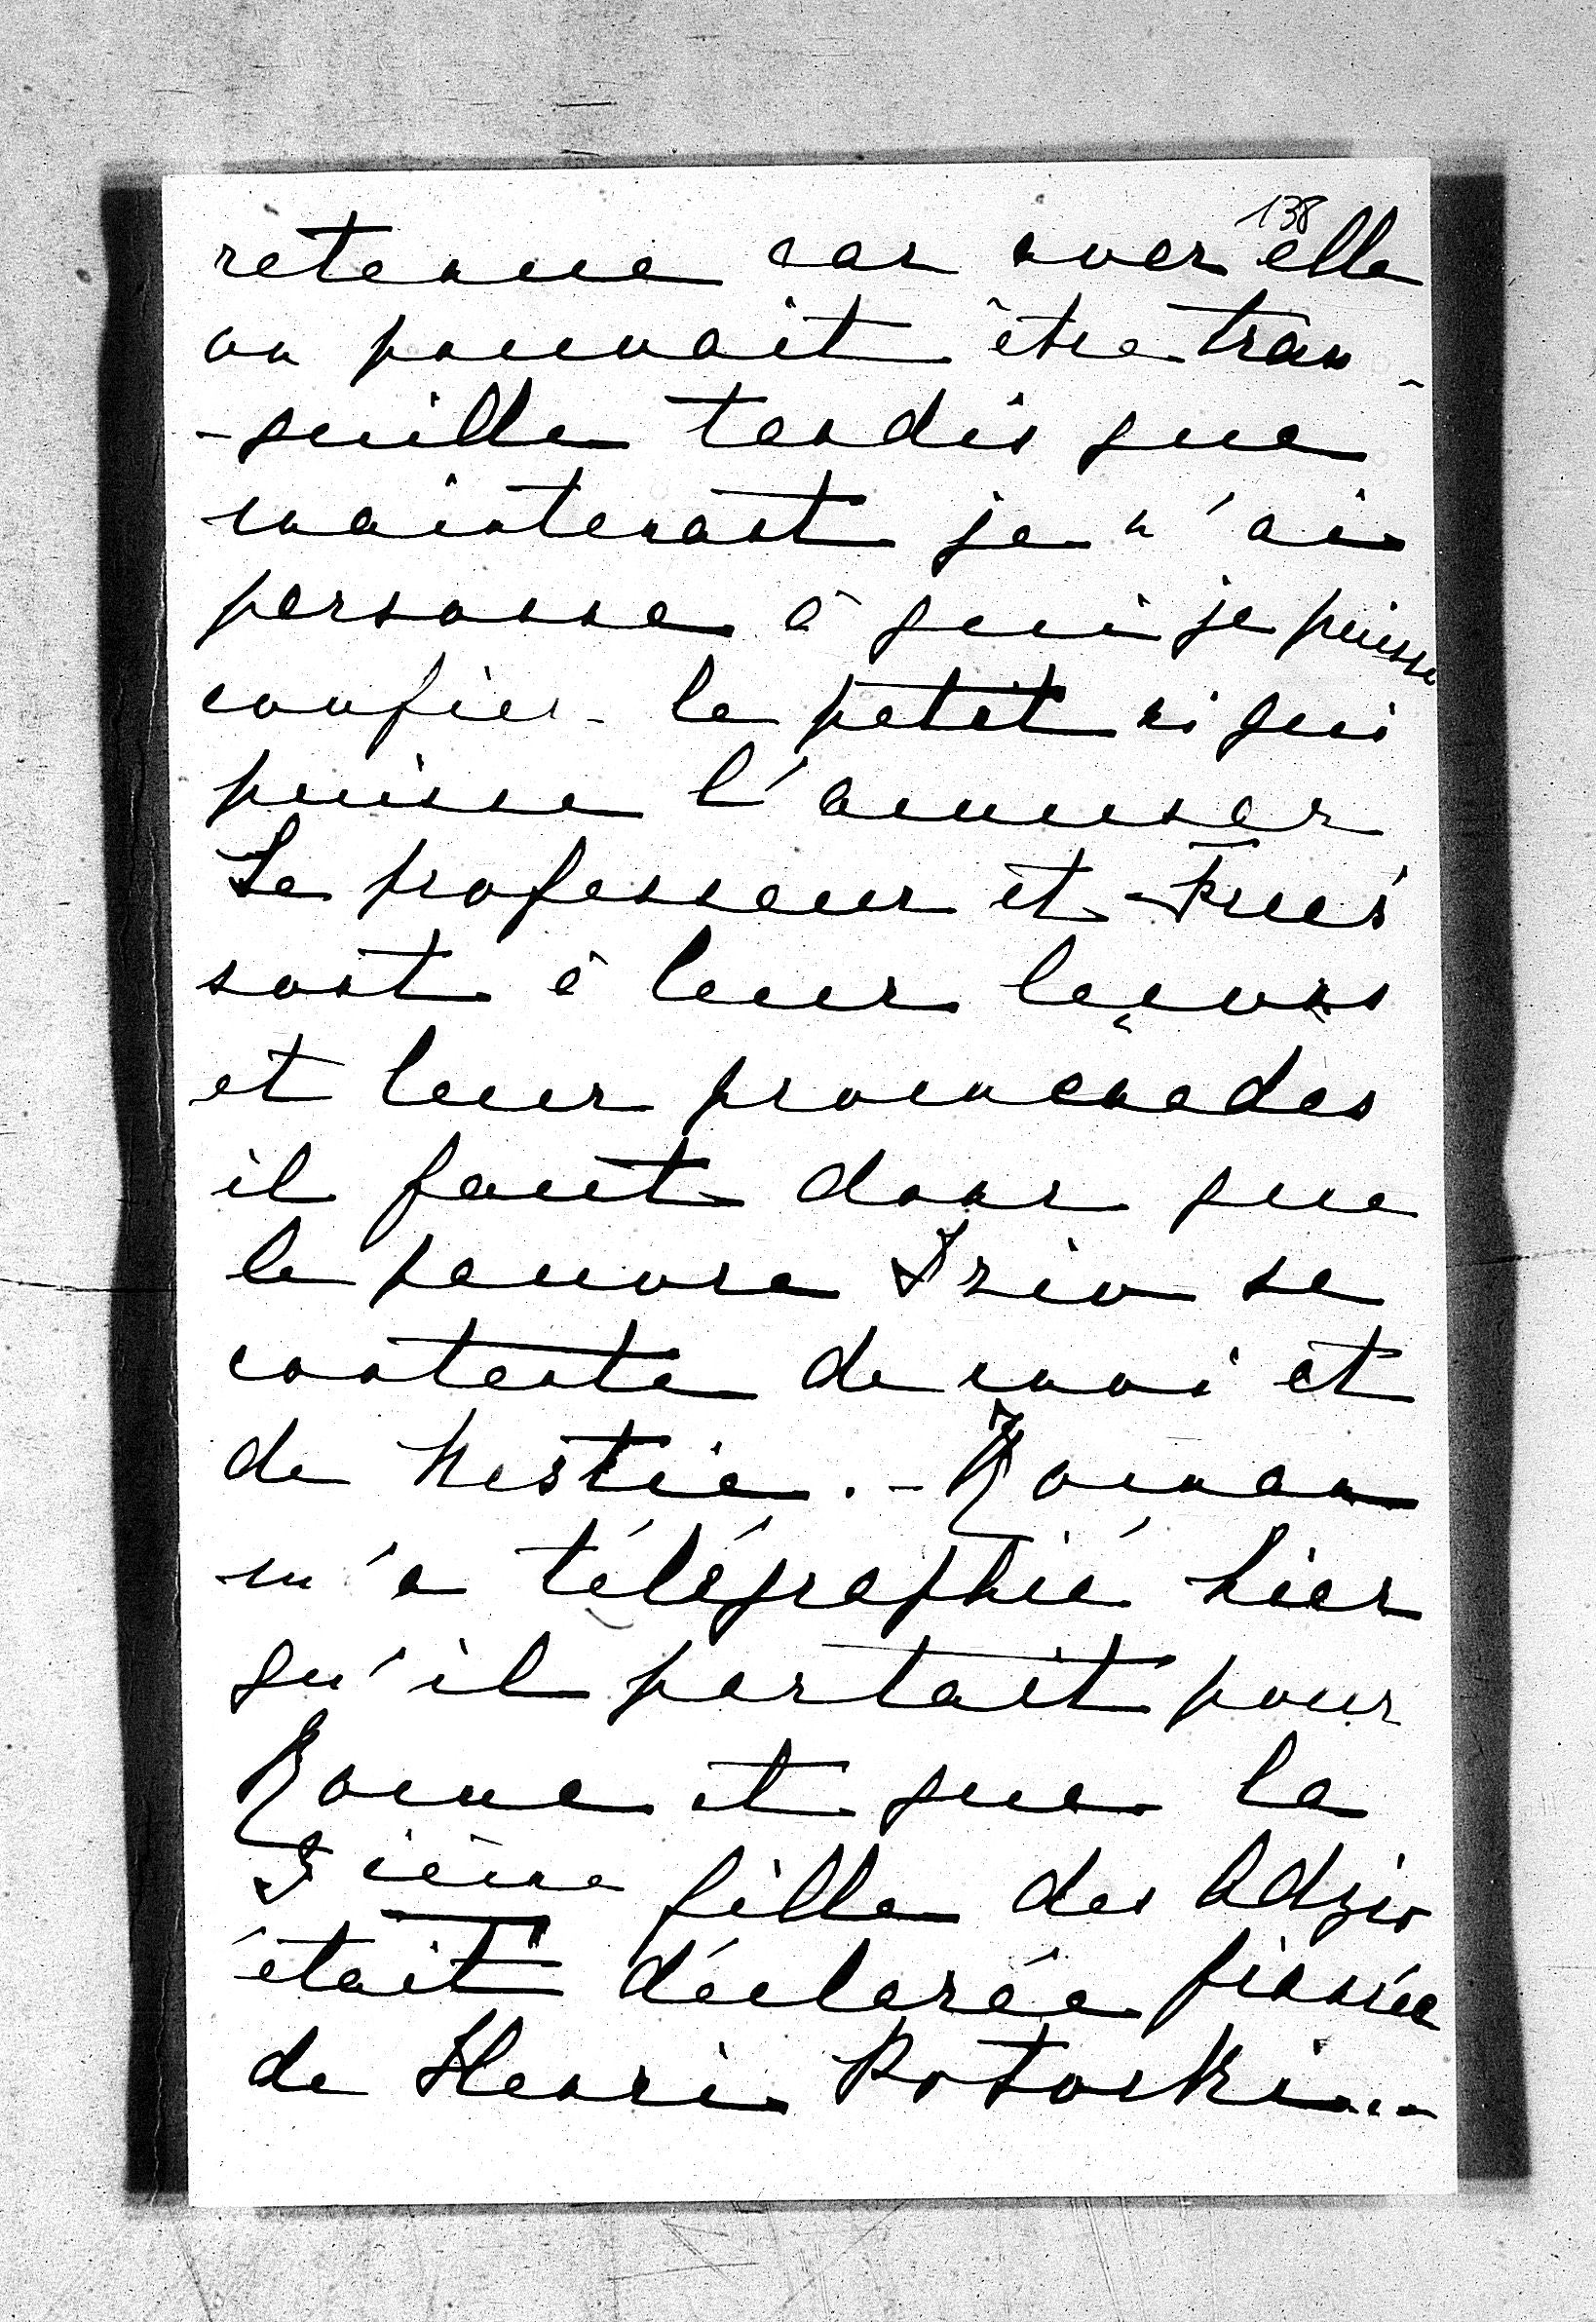 138
retenue car avec elle
on pouvait être tran-
-quille tandis que
maintenant je n'ai
personne à qui je puisse
confier le petit ni qui
puisse l'amuser
Le professeur et
sont à leur leçons
et leur promenades
il faut donc que
le pauvre se
contente de moi et
de Nestia. - Roman
m'a télégraphié hier
qu'il partait pour
Rome et que la
ième fille des Adzio
était déclarée fiancée
de Henri Potocki...